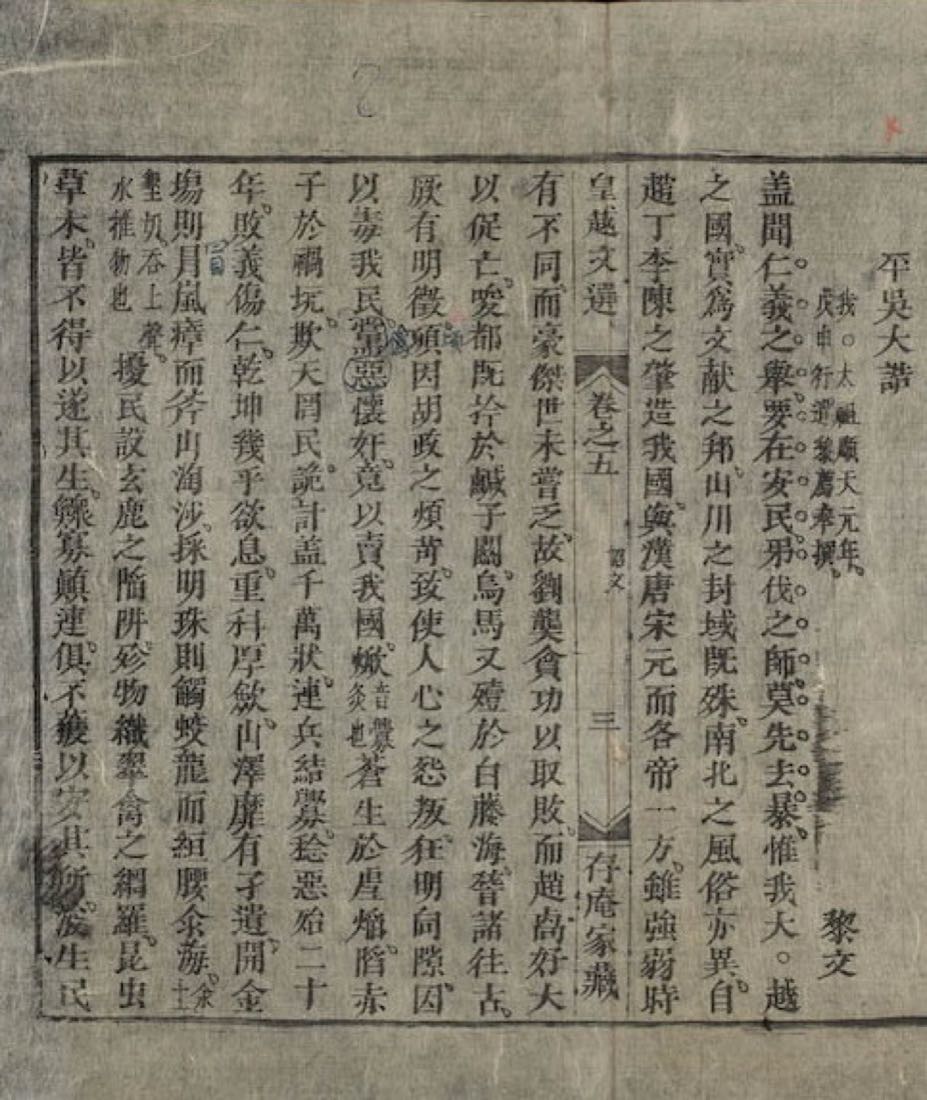 平吳大誥
我。太祖順天元年。
戊申行遣黎薦奉撰。
黎文
盖聞仁義之舉。要在安民。弔伐之師。莫先去暴。惟我大。越
之國。實爲文献之邦。山川之封域既殊。南北之風俗亦異。自
趙丁李陳之肇造我國。與漢唐宋元而各帝一方。雖強弱時
皇越文選
卷之五
詔文
三
存庵家藏
有不同。而豪傑世未嘗乏。故劉龑貪功以取敗。而趙卨好大
以促亡。唆都既拎於鹹子關。烏馬又殪於白藤海。嵇諸往古。
厥有明徵。頃因胡政之煩苛。致使人心之怨叛。狂明伺隙。因
以毒我民。黨惡懷奸。竟以賣我國。焮
灸也
蒼生於虐焰。陷赤
子於禍坑。欺天罔民。詭計盖千萬狀。連兵結釁。稔惡殆二十
年。敗義傷仁。乾坤幾乎欲息。重科厚斂。山澤靡有孑遺。開金
塲則冐嵐瘴而斧山淘沙。採明珠則觸蛟龍而絙腰汆海。
汆
土
墾切。吞上聲。
水推物也
擾民設玄鹿之陷阱。殄物織翠禽之網羅。昆虫
草木。皆不得以遂其生。鰥寡顛連。俱不獲以安其所。浚生民